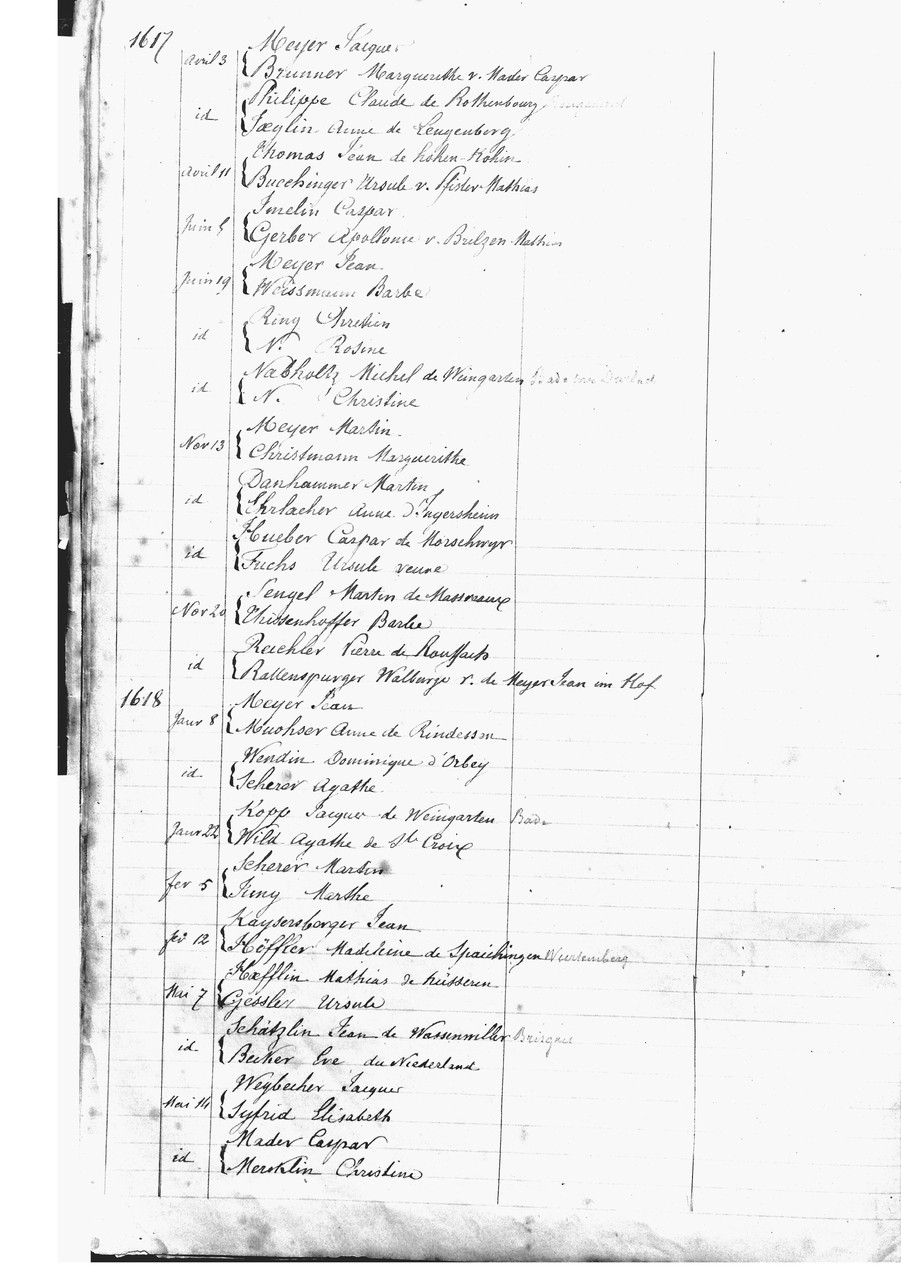 1617
Meyer Jacques
Avril 3
Brunner Marguerithe v. Mader Caspar
Philippe Claude de Rothenbourg
id
Jæylin Anne de Leugenberg
Thomas Jean de hohen-Rohin
Avril 11
Bucchinger Ursule v. Pfister Mathias
Imelin Caspar
Juin 5
Gerber Apollonie v. Bulzen Mathias
Meyer Jean
Juin 19
Weissmum Barbe
Ring Chretien
id
N. Rosine
Nabholtz Michel de Weingarten
id
N. Christine
Meyer Martin
Nov 13
Christmann Marguerithe
Danhammer Martin
id
Ehrlacher Anne d'Ingersheim
Hueber Caspar de Morschwyr
id
Fuchs Ursule veuve
Sengel Martin de Massvaux
Nov 20
Thissenhoffer Barbe
Reichler Pierre de Rouffach
id
Rattenspurger Walburge v. de Meyer Jean im Hof
1618
Meyer Jean
Janv 8
Muohser Anne de Rindessm
Wendin Dominique d'Orbey
id
Scherer Agathe
Kopp Jacques de Weingarten Bade
Janv 22
Wild Agathe de Ste Croix
Scherer Martin
fev 5
Jung Marthe
Kaysersberger Jean
fev 12
Höffler Madeleine de Spaichingen Wurtemberg
Hæfflin Mathias de husseren
Mai 7
Gessler Ursule
Schätzlin Jean de Wassenwiller Brisgau
id
Becker Eve du Niederland
Weybecher Jacques
Mai 14
Syfrid Elisabeth
Mader Caspar
id
Mercklin Christine